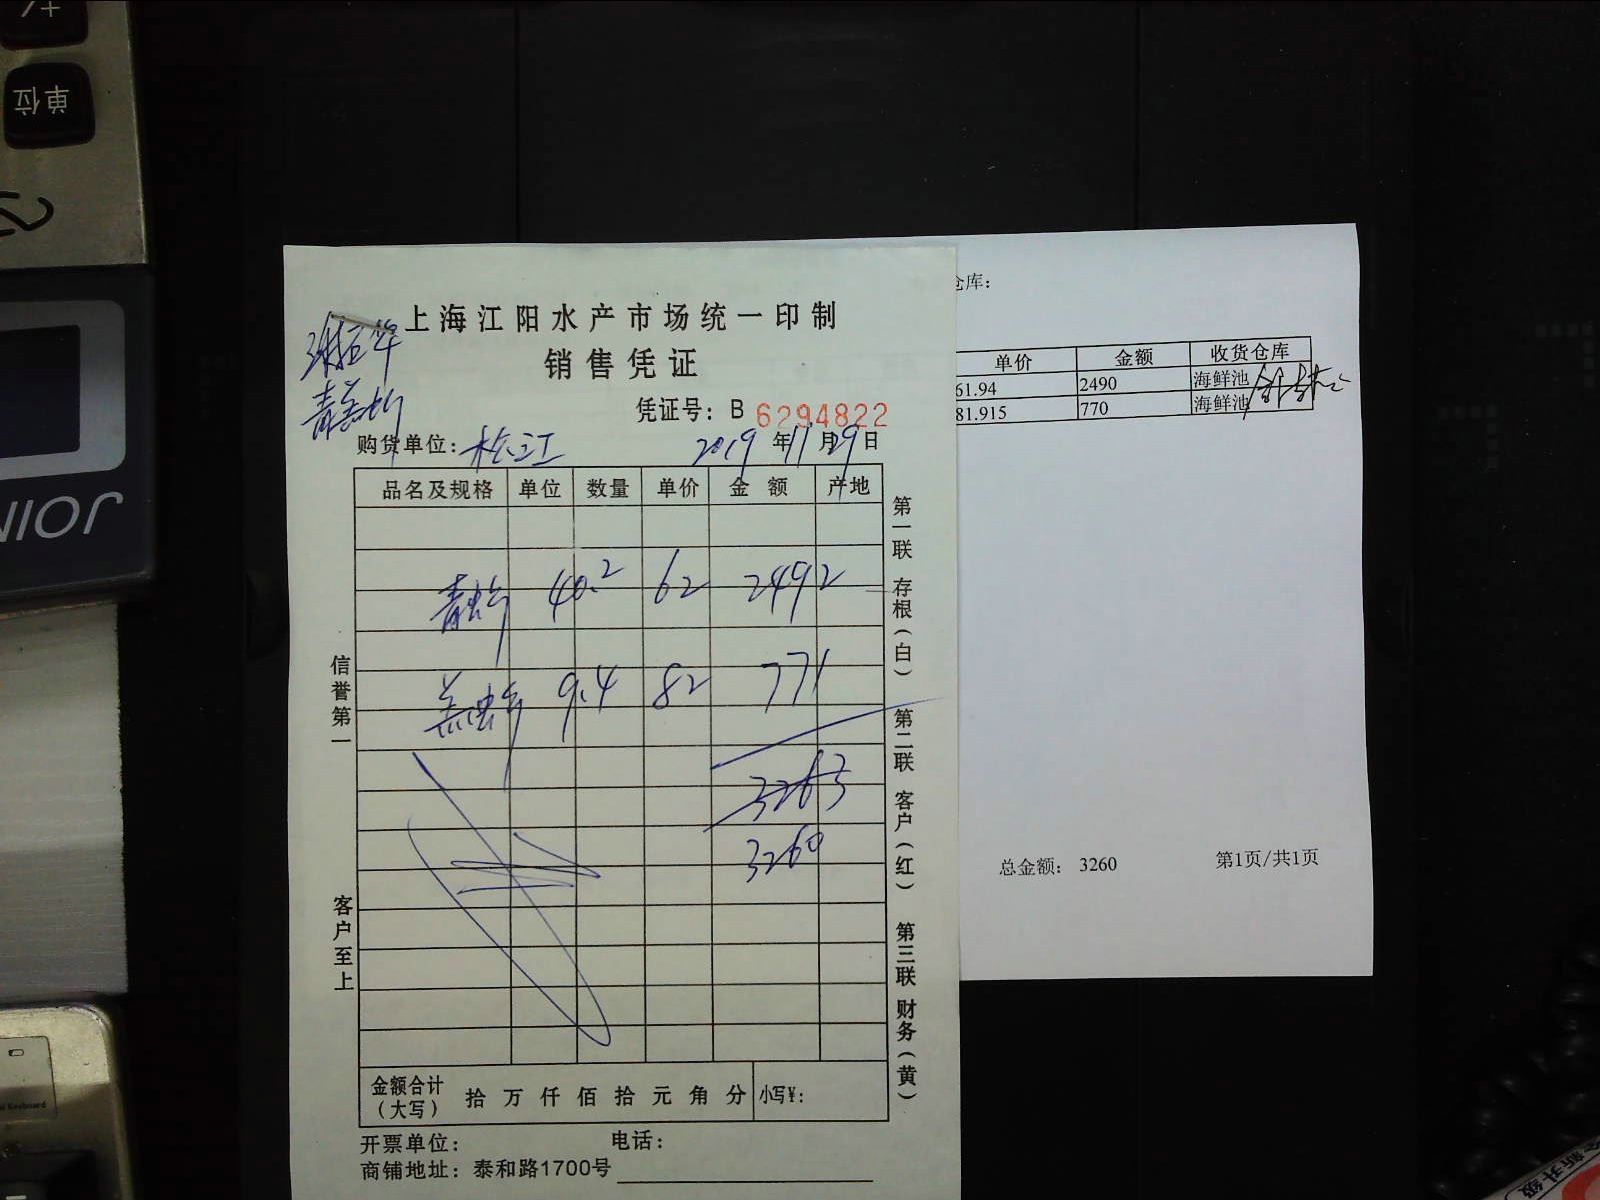 单位
上海江阳水产市场统一印制
销售凭证
凭证号: B 6294822
购货单位: 松江 2019 年 11 月 29 日
品名及规格 单位 数量 单价 金 额 产地
青虫台 40.2 62 2492
盖虫台 9.4 82 771
3263
3260
金额合计(大写) 拾 万 仟 佰 拾 元 角 分 小写¥:
开票单位: 电话:
商铺地址: 泰和路1700号
信誉第一
客户至上
第一联 存根(白)
第二联 客户(红)
第三联 财务(黄)
仓库:
单价 金额 收货仓库
61.94 2490 海鲜池
81.915 770 海鲜池
总金额: 3260 第1页/共1页